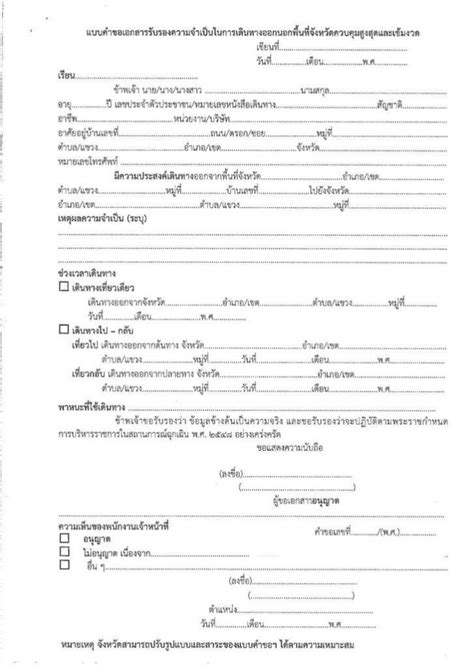 แบบคำขอเอกสารรับรองความจำเป็นในการเดินทางออกนอกพื้นที่จังหวัดควบคุมสูงสุดและเข้มงวด
เขียนที่..............................
วันที่............เดือน....................พ.ศ.................
เรียน........................................
ข้าพเจ้า นาย/นาง/นางสาว ........................................นามสกุล........................................
อายุ............ปี เลขประจำตัวประชาชน/หมายเลขหนังสือเดินทาง..............................สัญชาติ....................
อาชีพ..............................หน่วยงาน/บริษัท..................................................
อาศัยอยู่บ้านเลขที่..............................ถนน/ตรอก/ซอย....................หมู่ที่....................
ตำบล/แขวง..............................อำเภอ/เขต..............................จังหวัด..............................
หมายเลขโทรศัพท์ ..............................
มีความประสงค์เดินทางออกจากพื้นที่จังหวัด..............................อำเภอ/เขต....................
ตำบล/แขวง....................หมู่ที่............บ้านเลขที่....................ไปยังจังหวัด..............................
อำเภอ/เขต..............................ตำบล/แขวง..............................หมู่ที่....................
เหตุผลความจำเป็น (ระบุ)
ช่วงเวลาเดินทาง
เดินทางเที่ยวเดียว
เดินทางออกจากจังหวัด....................อำเภอ/เขต....................ตำบล/แขวง....................หมู่ที่............
วันที่............เดือน....................พ.ศ............
เดินทางไป – กลับ
เที่ยวไป เดินทางออกจากต้นทาง จังหวัด..............................อำเภอ/เขต..............................
ตำบล/แขวง....................หมู่ที่............วันที่............เดือน....................พ.ศ....................
เที่ยวกลับ เดินทางออกจากปลายทาง จังหวัด..............................อำเภอ/เขต..............................
ตำบล/แขวง....................หมู่ที่............วันที่............เดือน....................พ.ศ....................
พาหนะที่ใช้เดินทาง ............................................................
ข้าพเจ้าขอรับรองว่า ข้อมูลข้างต้นเป็นความจริง และขอรับรองว่าจะปฏิบัติตามพระราชกำหนด
การบริหารราชการในสถานการณ์ฉุกเฉิน พ.ศ. ๒๕๔๘ อย่างเคร่งครัด
ขอแสดงความนับถือ
(ลงชื่อ)..............................
(..............................)
ผู้ขอเอกสารอนุญาต
ความเห็นของพนักงานเจ้าหน้าที่ คำขอเลขที่............/(พ.ศ.)............
อนุญาต
ไม่อนุญาต เนื่องจาก..................................................
อื่น ๆ............................................................
(ลงชื่อ)..............................
(..............................)
ตำแหน่ง..............................
วันที่............เดือน....................พ.ศ............
หมายเหตุ จังหวัดสามารถปรับรูปแบบและสาระของแบบคำขอฯ ได้ตามความเหมาะสม